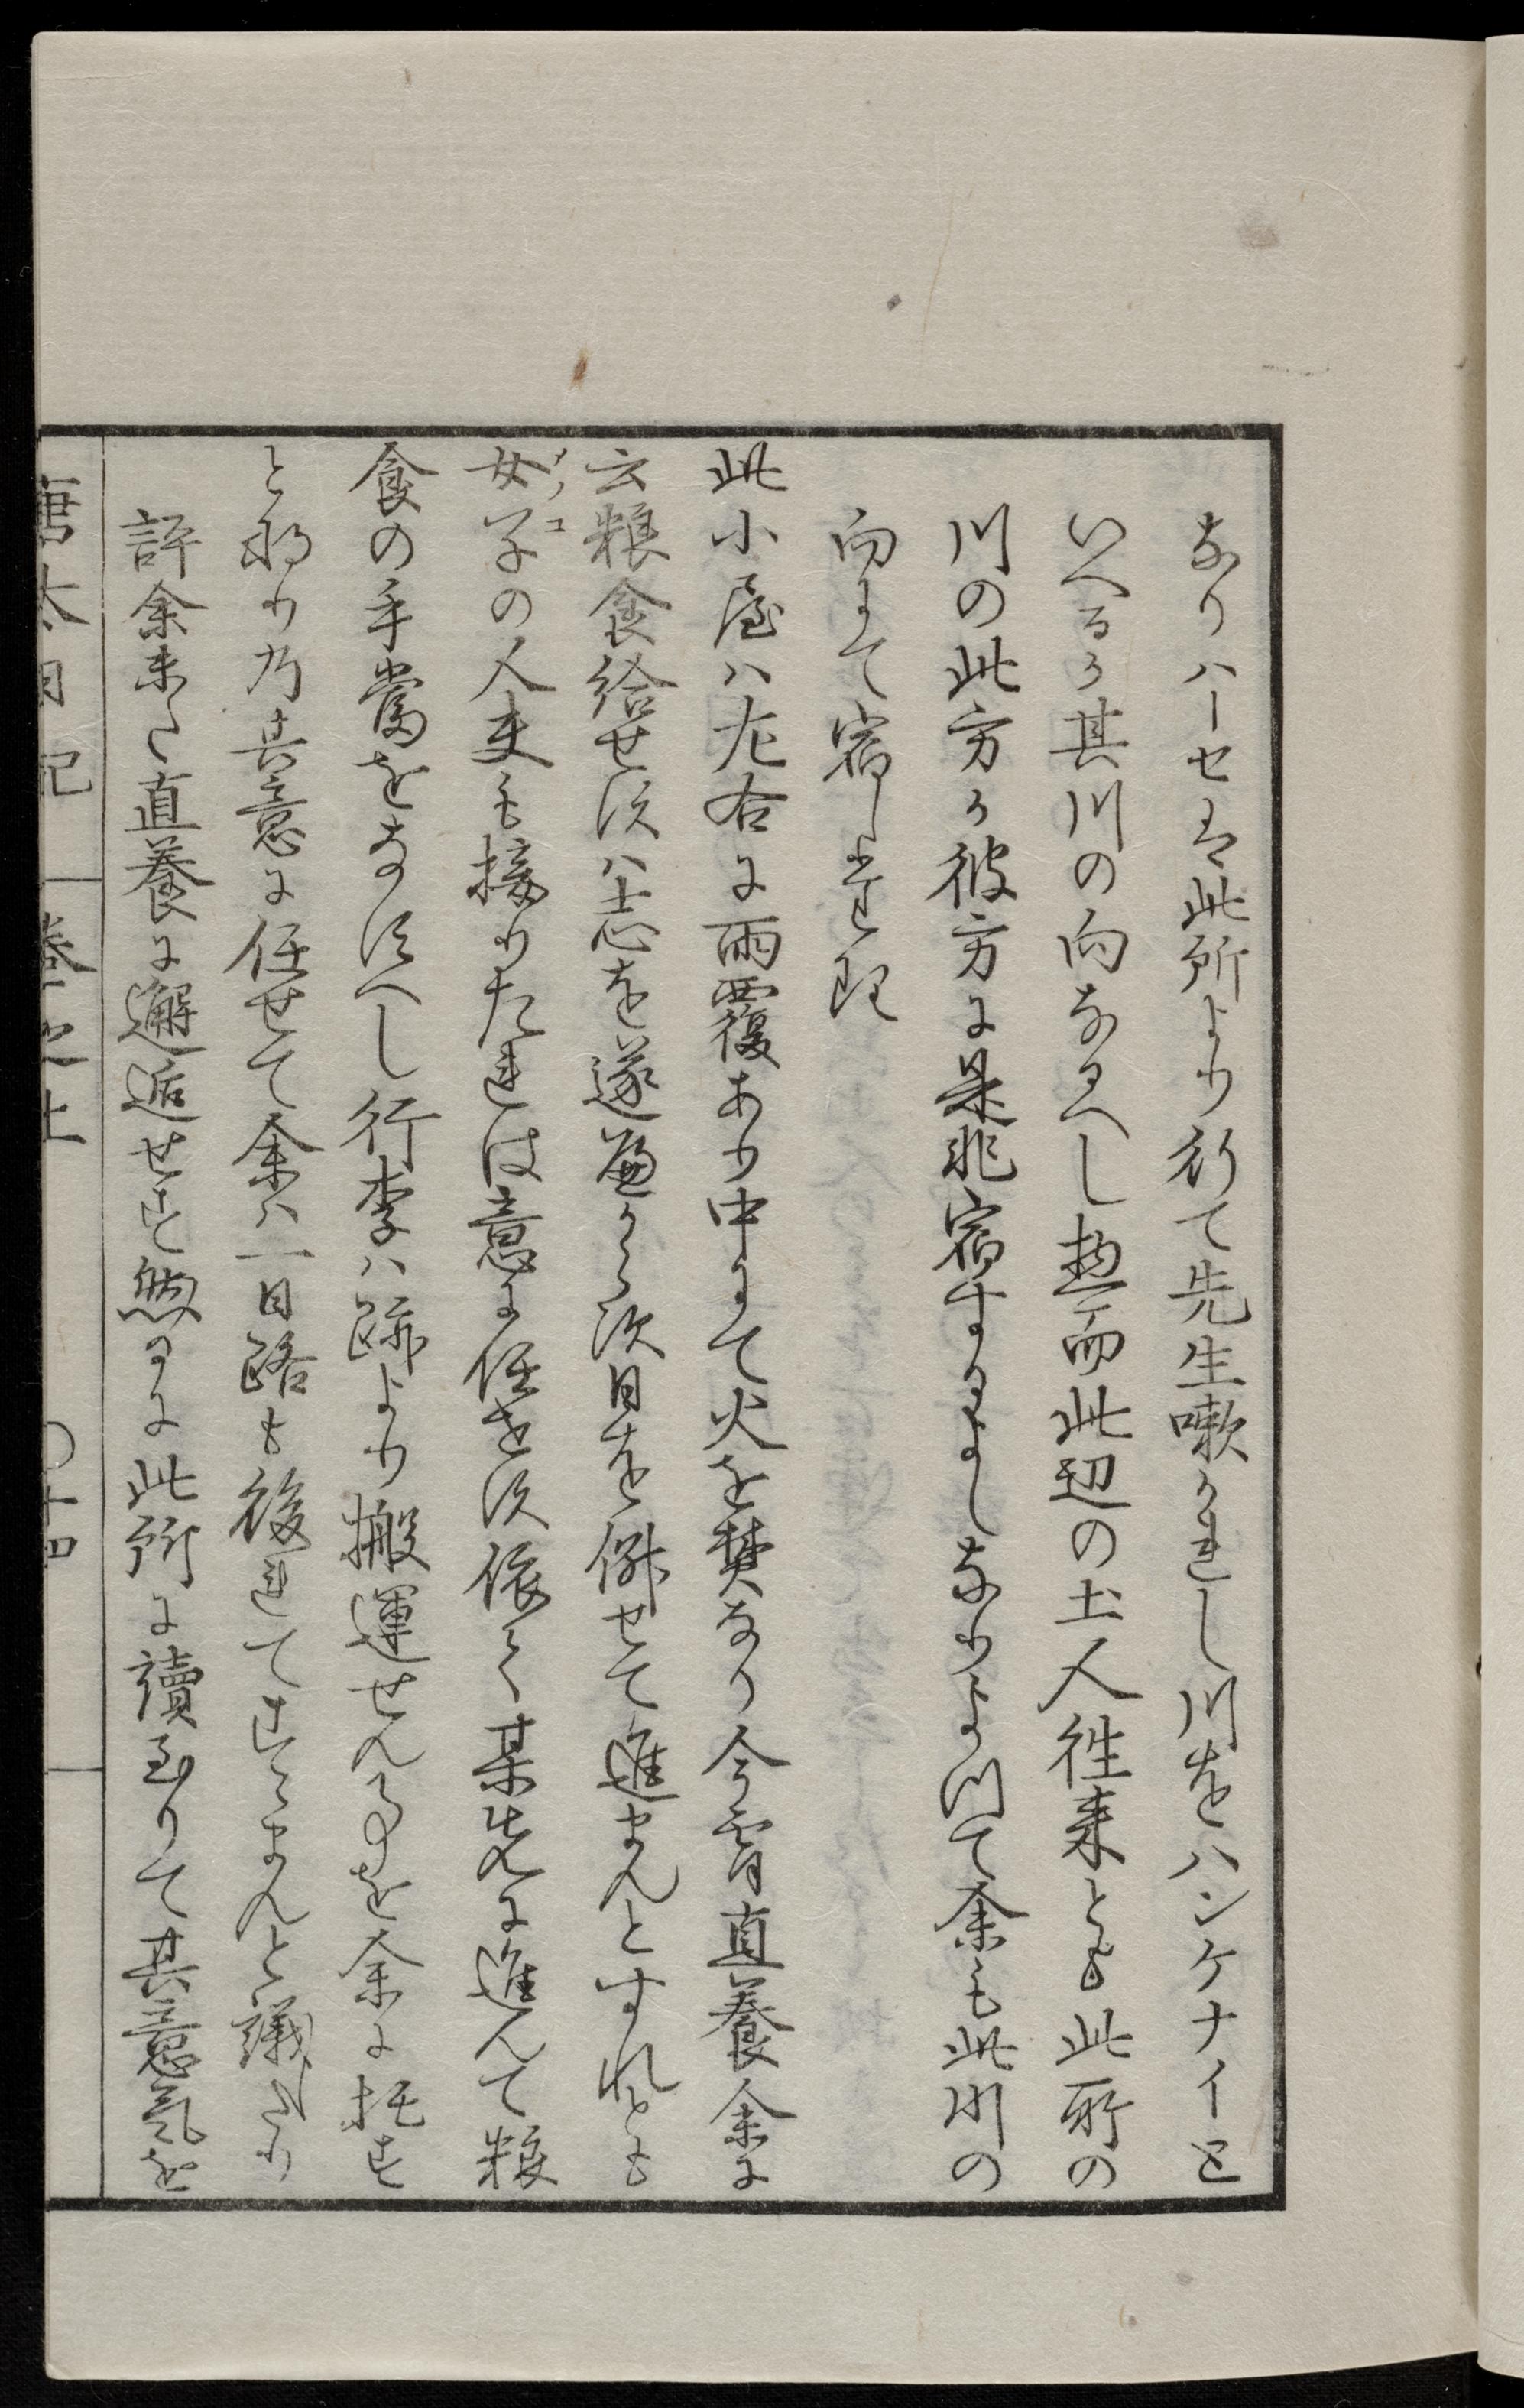 なりハーセは此所より行て先生嗽かれし川をハンケナイと
いへるか其川の向なるへし惣而此辺の土人往来とも此所の
川の此方か彼方に是非宿するよしなりよつて余も此川の
向にて宿したり
此小屋ハ左右に雨覆あり中にて火を焚なり今宵直養余に
云粮食給せすハ志を遂へから次日を併せて進まんとすれとも
女子の人夫も接りたれは意に任せす依て某先に進んて粮
メノコ
食の手当をなすへし行李ハ跡より搬運せん事を余に托す
と切り乃其意に任せて余ハ一日路も後れてすゝまんと議したり
評余未た直養に邂逅せす然るに此所に讀至りて其意氣を
唐太日記 巻之上 〇十四